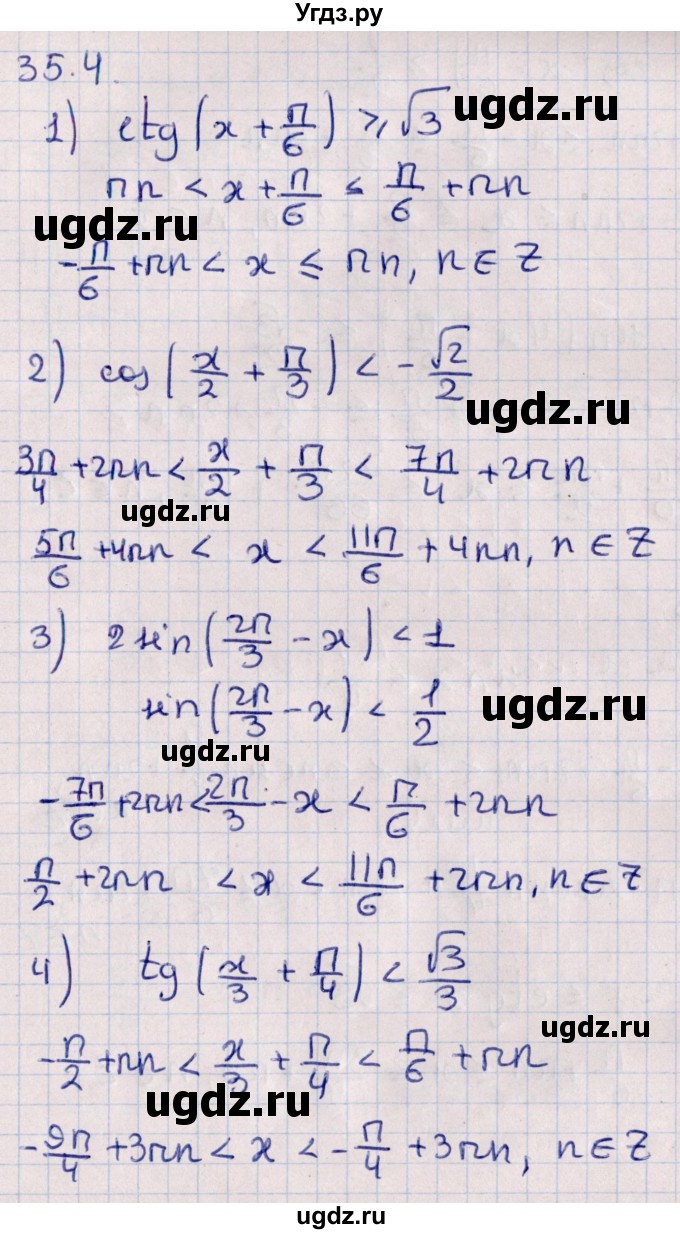 Угдз.ру
35.4.
1) ctg(x + π/6) ⩾ √3
ugdz.ru
πn < x + π/6 ≤ π/6 + πn
ugdz.ru
-π/6 + πn < x ≤ πn, n ∈ Z
2) cos(x/2 + π/3) < -√2/2
ugdz.ru
3π/4 + 2πn < x/2 + π/3 < 7π/4 + 2πn
ugdz.ru
5π/6 + 4πn < x < 11π/6 + 4πn, n ∈ Z
3) 2 sin(2π/3 - x) < 1
sin(2π/3 - x) < 1/2
ugdz.ru
ugdz.ru
-7π/6 + 2πn < 2π/3 - x < π/6 + 2πn
π/2 + 2πn < x < 11π/6 + 2πn, n ∈ Z
4) tg(x/3 + π/4) < √3/3
ugdz.ru
-π/2 + πn < x/3 + π/4 < π/6 + πn
ugdz.ru
-9π/4 + 3πn < x < -π/4 + 3πn, n ∈ Z
ugdz.ru